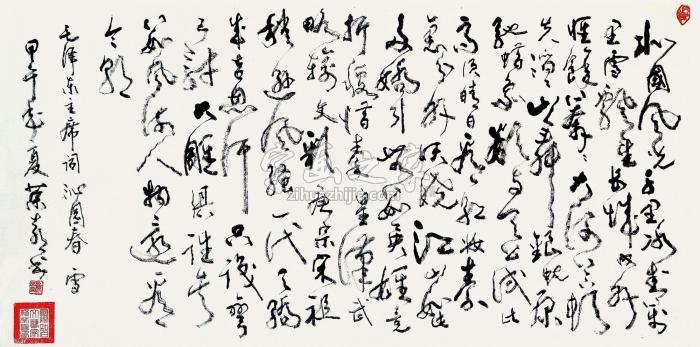 北国风光千里冰封万
里雪飘望长城内外
惟馀莽莽大河上下顿
失滔滔山舞银蛇原
驰蜡象欲与天公试比
高须晴日看红妆素
裹分外妖娆江山如此
多娇引无数英雄竞
折腰惜秦皇汉武
略输文采唐宗宋祖
稍逊风骚一代天骄
成吉思汗只识弯
弓射大雕俱往矣
数风流人物还看
今朝
毛泽东主席词 沁园春 雪
甲午年夏
zihuazhijie.com